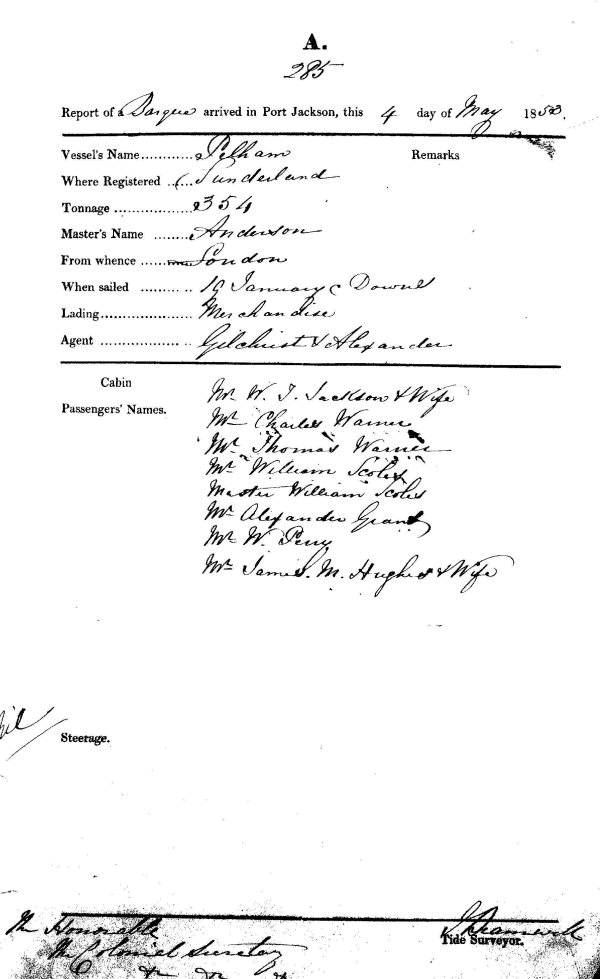 A.
285
Report of a Barque arrived in Port Jackson, this 4 day of May 1853.
Vessel's Name............ Pelham Remarks
Where Registered ..... Sunderland
Tonnage .................. 354
Master's Name ........ Anderson
From whence ...... London
When sailed ......... .. 19 January Downs
Lading..................... Merchandise
Agent .................. .. Gilchrist & Alexander
Cabin
Passengers' Names.
Mr W. T. Jackson & Wife
Mr Charles Warner
Mr Thomas Warner
Mr William Scoles
Master William Scoles
Mr Alexander Grant
Mr W. Perry
Mr James. M. Hughes & Wife
Steerage.
The Honorable
The Colonial Secretary
Tide Surveyor.